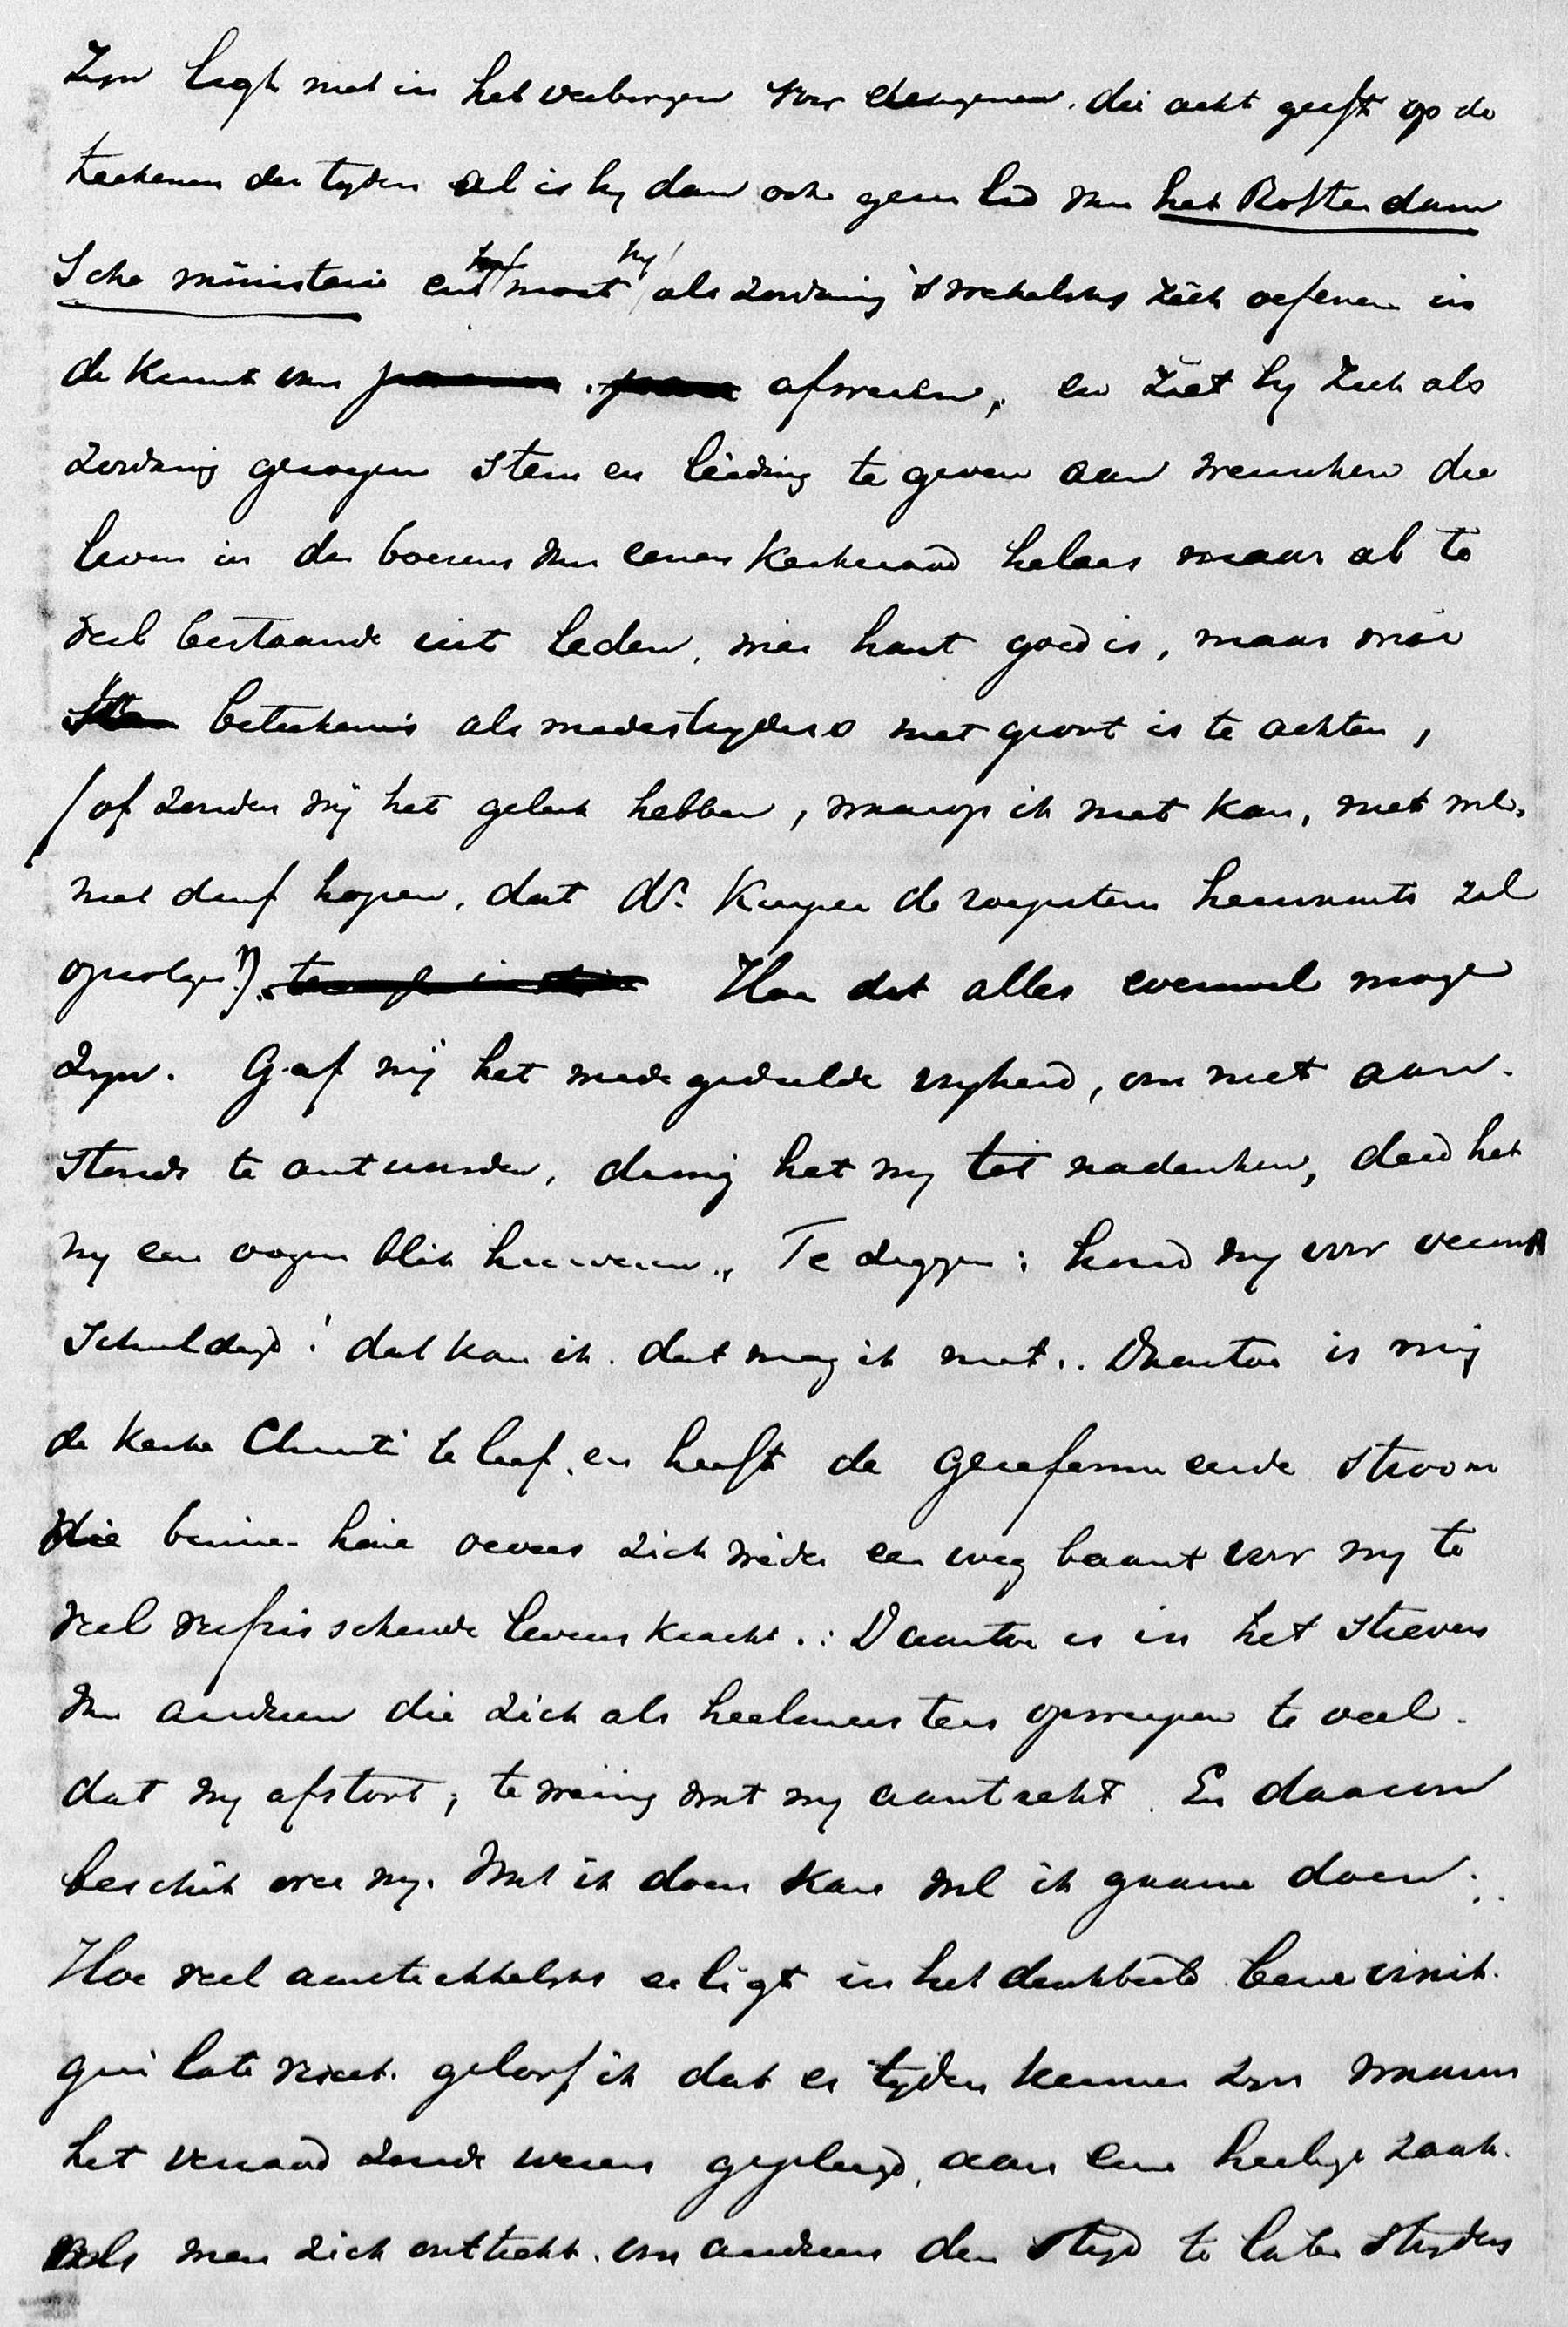 zyn ligt niet in het verborgen voor dengenen, die acht geeft op de
teekenen der tyden al is hy dan ook geen lid van het Rotterdam
sche ministerie en moet hy als zoodanig wekelyks zich oefenen in
de kunst van afwezen, en ziet hy zich als
zoodanig geroepen stem en leiding te geven aan menschen die
leven in den boezem van eenen Kerkeraad helaas maar al te
veel bestaande uit leden, wier hart goed is, maar wier
beteekenis als medestryders niet groot is te achten,
(of zouden wij het geluk hebben, waarop ik niet kan, niet wil,
niet durf hopen, dat Dr. Kuyper de roepstem herwaarts zal
opvolgen?). Hoe dat alles evenwel moge
zyn. Gaf mij het mede gedeelde vryheid, om niet aan-
stonds te antwoorden, drong het my tot nadenken, deed het
my een oogen blik huiveren, Te zeggen: houd my voor veront
schuldigd! dat kan ik. dat mag ik niet.. Daartoe is mij
de kerke Christi te lief, en heeft de gereformeerde stroom
die binnen hare oevers zich weder een weg baant voor my te
veel verfrisschende levens kracht.: Daartoe is in het streven
van anderen die zich als heelmeesters opwerpen te veel
dat my afstoot, te weinig wat my aantrekt. En daarom
beschik over my. Wat ik doen kan wil ik gaarne doen.
Hoe veel aantrekkelyks er ligt in het denkbeeld bene vixit
qui latuit geloof ik dat er tyden kunnen zyn waarin
het verraad zoude wezen gepleegd, aan eene heilige zaak.
als men zich onttrekt. om anderen den stryd te laten stryden